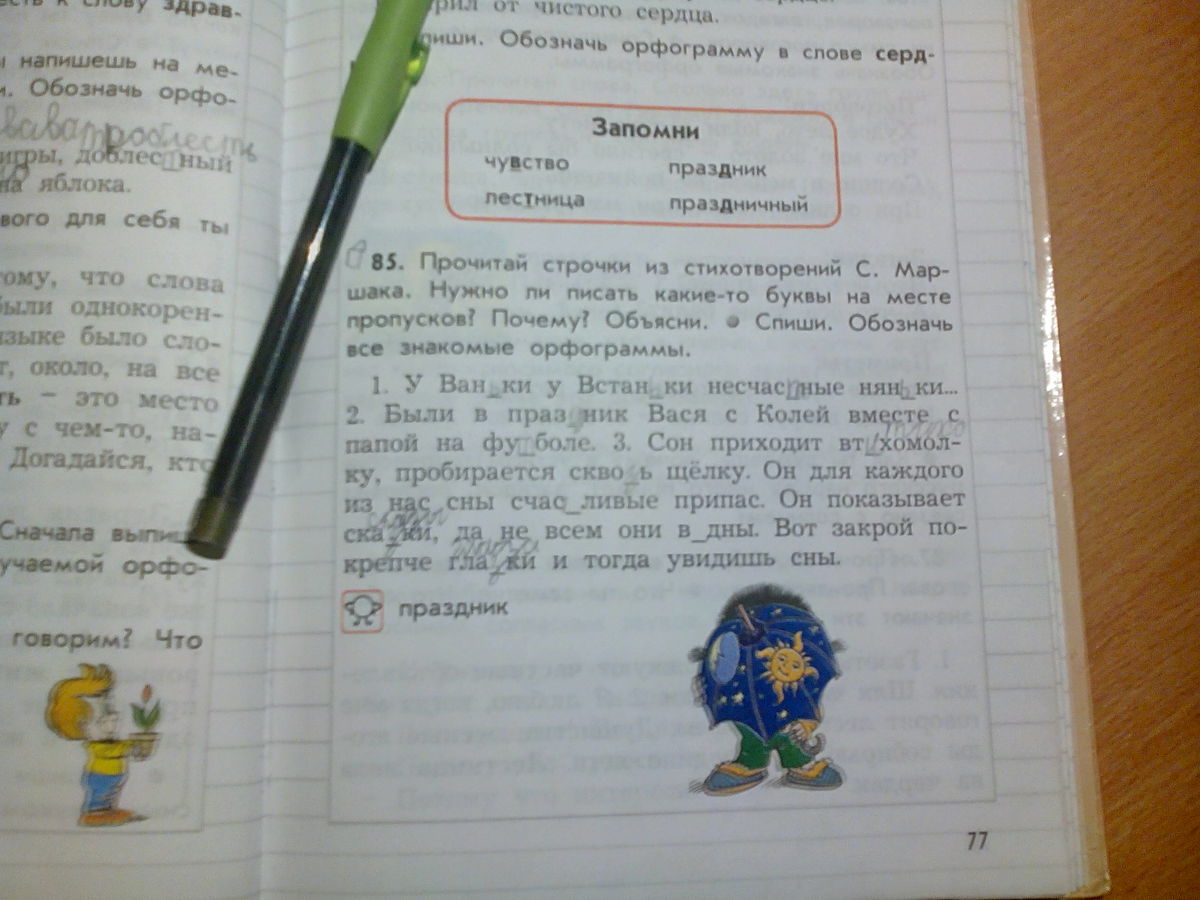 есть к слову здрав-
напишешь на ме-
Обозначь орфо-
игры, доблес_ный
на яблока.
вого для себя ты
тому, что слова
были однокорен-
языке было сло-
т, около, на все
ть – это место
у с чем-то, на-
Догадайся, кто
Сначала выпиш
учаемой орфо-
говорим? Что
рил от чистого сердца.
пиши. Обозначь орфограмму в слове серд-
Запомни
чувство праздник
лестница праздничный
85. Прочитай строчки из стихотворений С. Мар-
шака. Нужно ли писать какие-то буквы на месте
пропусков? Почему? Объясни. • Спиши. Обозначь
все знакомые орфограммы.
1. У Ван_ки у Встан_ки несчас_ные нян_ки...
2. Были в праз_ник Вася с Колей вместе с
папой на фу_боле. 3. Сон приходит вт_хомол-
ку, пробирается скво_ь щёлку. Он для каждого
из нас сны счас_ливые припас. Он показывает
ска_ки, да не всем они в_дны. Вот закрой по-
крепче гла_ки и тогда увидишь сны.
праздник
77